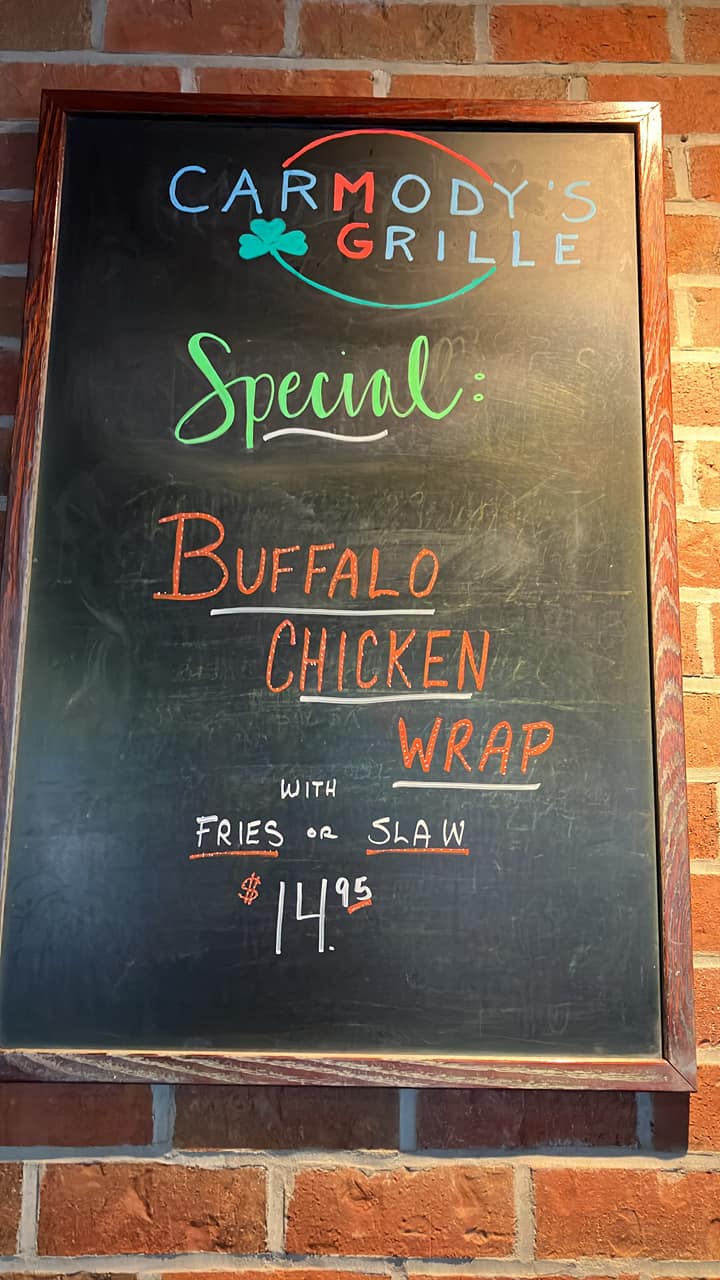 CARMODY'S
GRILLE
Special:
BUFFALO
CHICKEN
WRAP
WITH
FRIES OR SLAW
$14.95